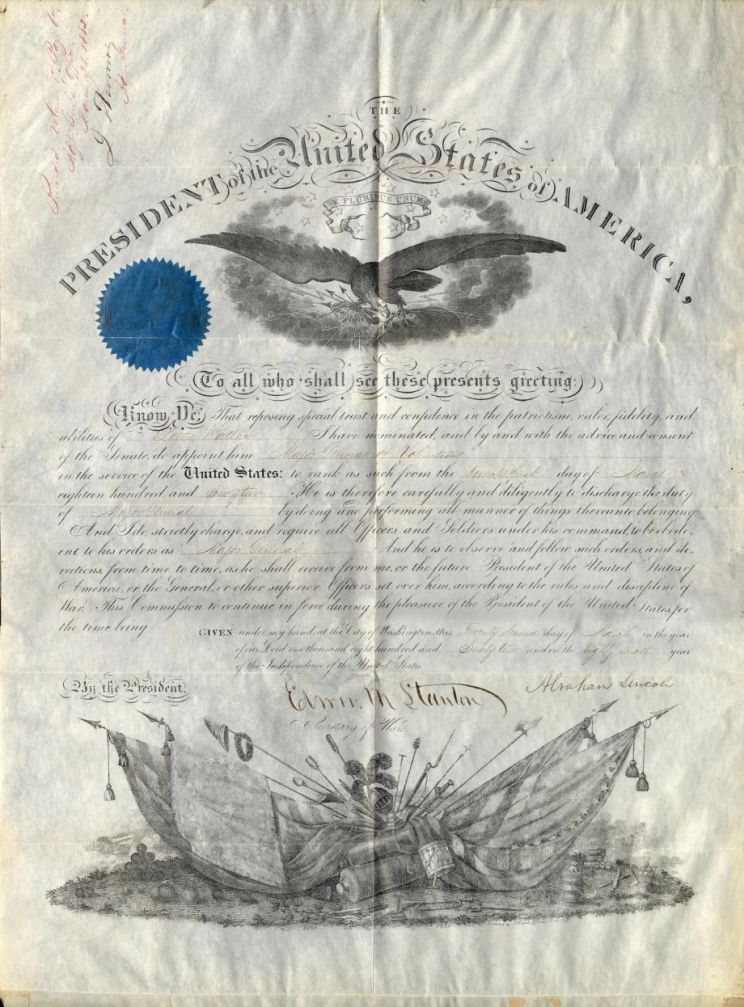 THE
PRESIDENT of the United States of AMERICA,
E PLURIBUS UNUM
To all who shall see these presents greeting:
Know Ye, That reposing special trust and confidence in the patriotism, valor, fidelity, and
abilities of I have nominated, and by and with the advice and consent
of the Senate, do appoint him Major General of Volunteers
in the service of the United States: to rank as such from the day of March
eighteen hundred and sixty two He is therefore carefully and diligently to discharge the duty
of Major General by doing and performing all manner of things thereunto belonging
And I do, strictly charge, and require all Officers and Soldiers under his command, to be obedi-
ent to his orders as Major General And he is to observe and follow such orders, and di-
rections, from time to time, as he shall receive from me, or the future President of the United States of
America, or the General, or other superior Officers set over him, according to the rules and discipline of
War. This Commission to continue in force during the pleasure of the President of the United States, for
the time being
GIVEN under my hand, at the City of Washington, this Twenty second day of March in the year
of our Lord one thousand eight hundred and Sixty two and in the eighty sixth year
of the Independence of the United States
By the President
Abraham Lincoln
Edwin M Stanton
Secretary of War